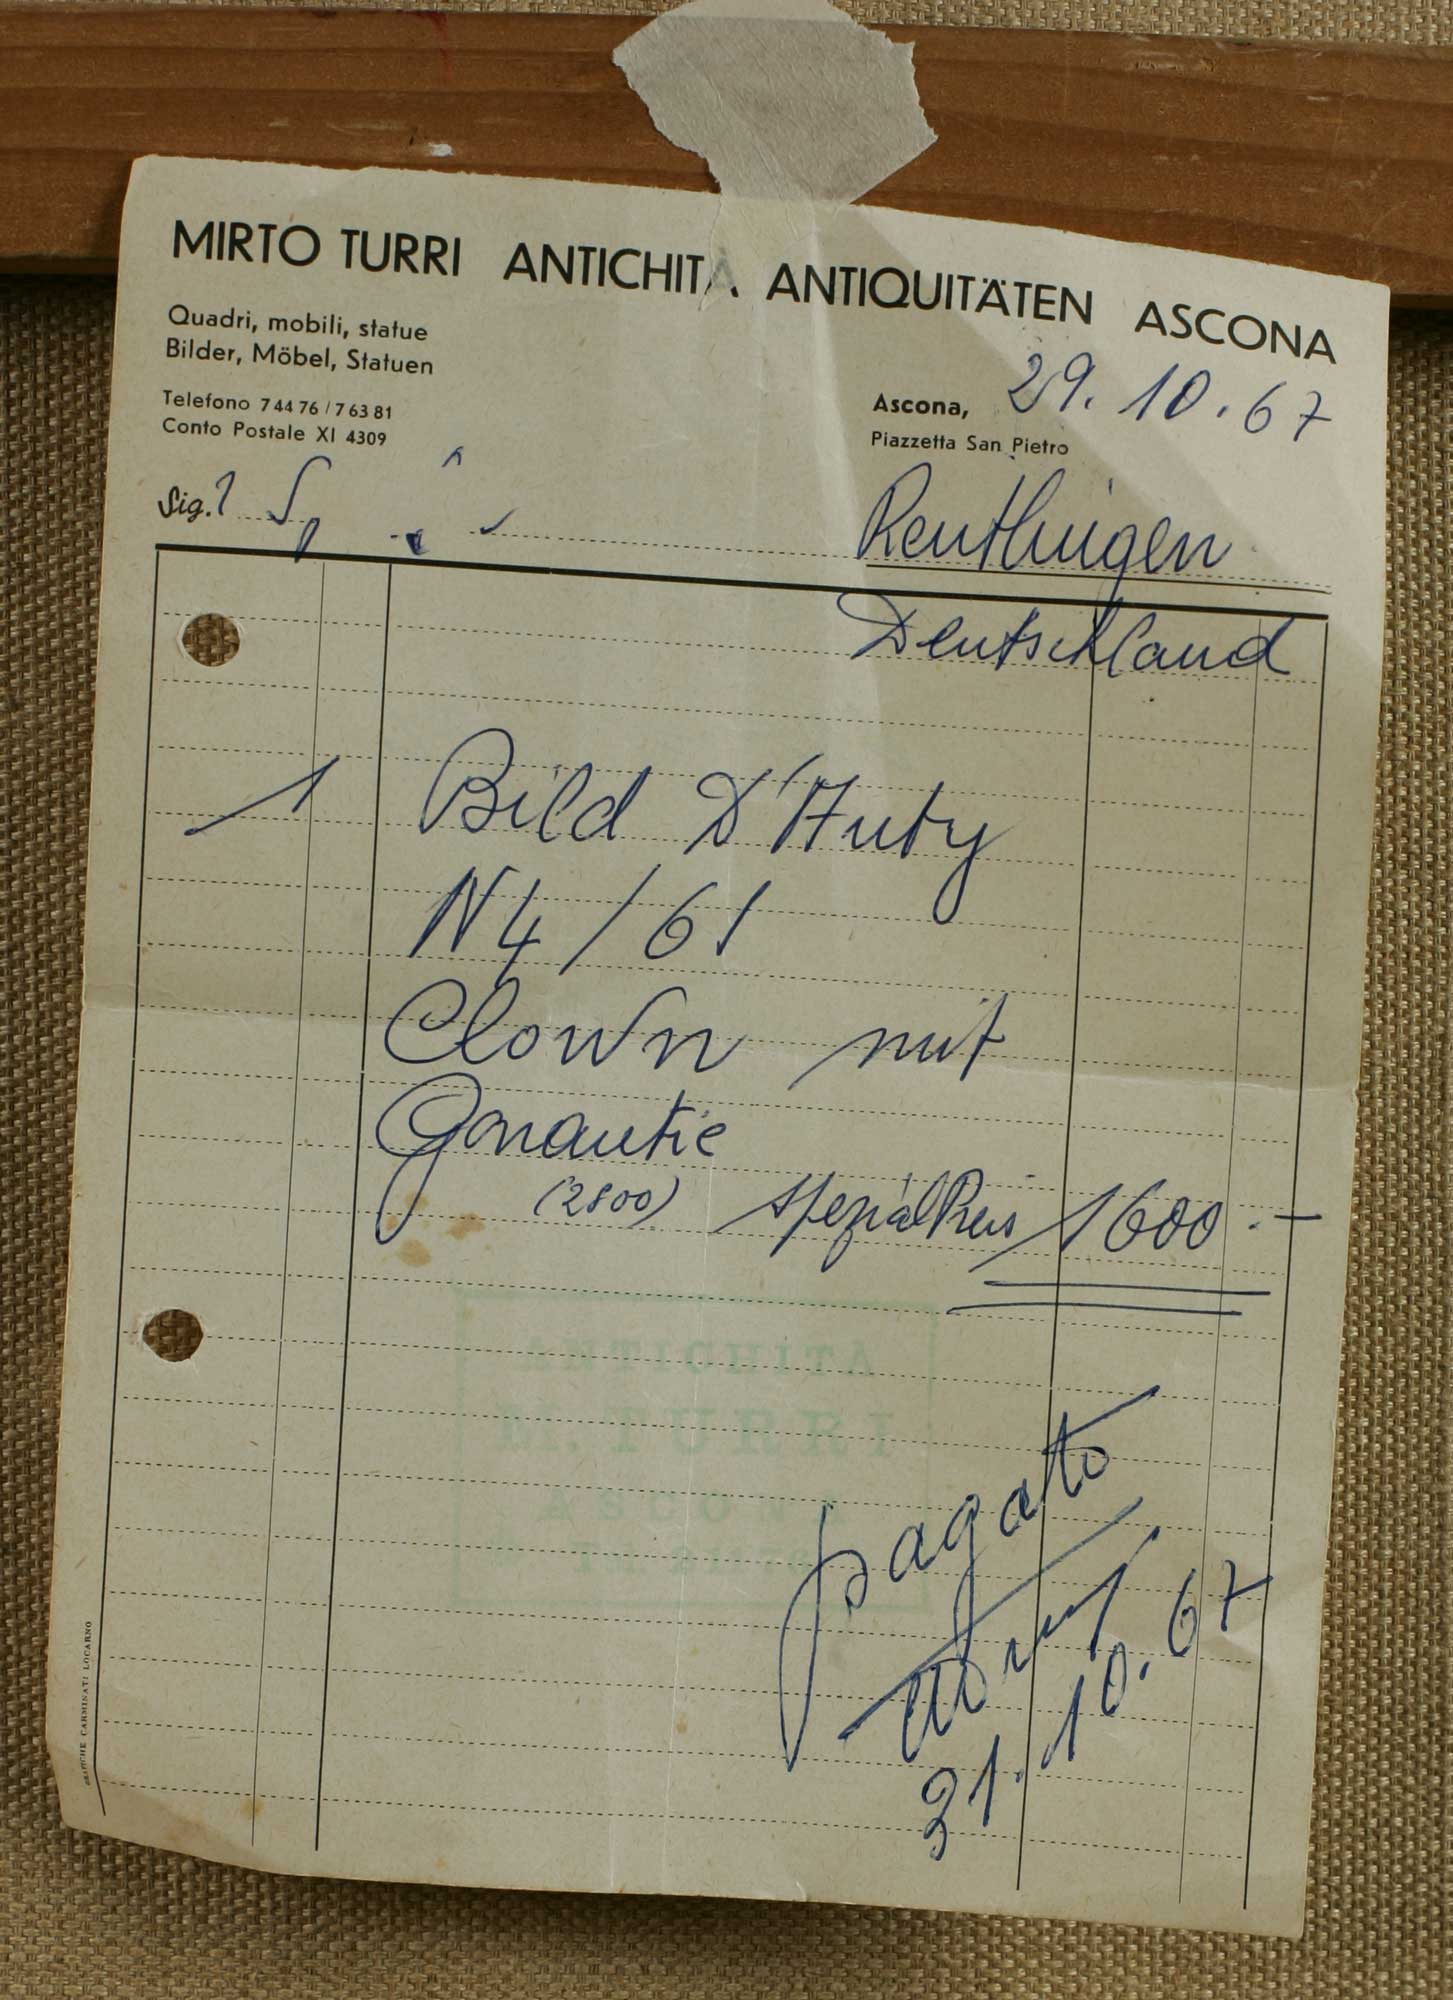 MIRTO TURRI ANTICHITÀ ANTIQUITÄTEN ASCONA
Quadri, mobili, statue
Bilder, Möbel, Statuen
Telefono 7 44 76 / 7 63 81
Conto Postale XI 4309
Ascona, 29.10.67
Piazzetta San Pietro
Sig.
Reuthlingen
Deutschland
1 Bild D'Huty
N4/61
Clown mit
Garantie
(2800) SpezialPreis 1600.—
ANTICHITÀ
M. TURRI
ASCONA
pagato
31.10.67
GRAFICHE CARMINATI LOCARNO